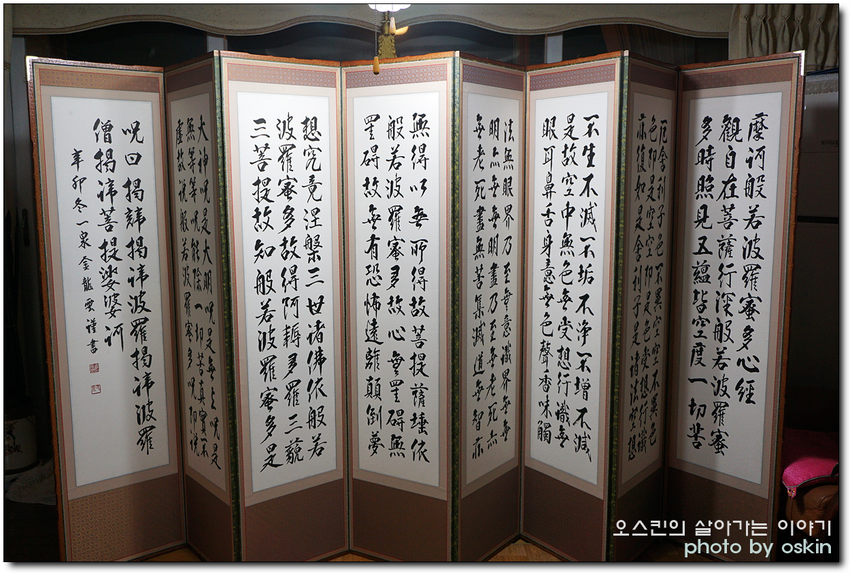 摩訶般若波羅蜜多心經
觀自在菩薩行深般若波羅蜜
多時照見五蘊皆空度一切苦
厄舍利子色不異空空不異色
色卽是空空卽是色受想行識
亦復如是舍利子是諸法空想
不生不滅不垢不淨不增不減
是故空中無色無受想行識無
眼耳鼻舌身意無色聲香味觸
法無眼界乃至無意識界無無
明亦無無明盡乃至無老死亦
無老死盡無苦集滅道無智亦
無得以無所得故菩提薩埵依
般若波羅蜜多故心無罣碍無
罣碍故無有恐怖遠離顛倒夢
想究竟涅槃三世諸佛依般若
波羅蜜多故得阿耨多羅三藐
三菩提故知般若波羅蜜多是
大神呪是大明呪是無上呪是
無等等呪能除一切苦真實不
虛故說般若波羅蜜多呪卽說
呪曰揭諦揭諦波羅揭諦波羅
僧揭諦菩提娑婆訶
辛卯冬一泉金謹書
오스킨의 살아가는 이야기
photo by oskin